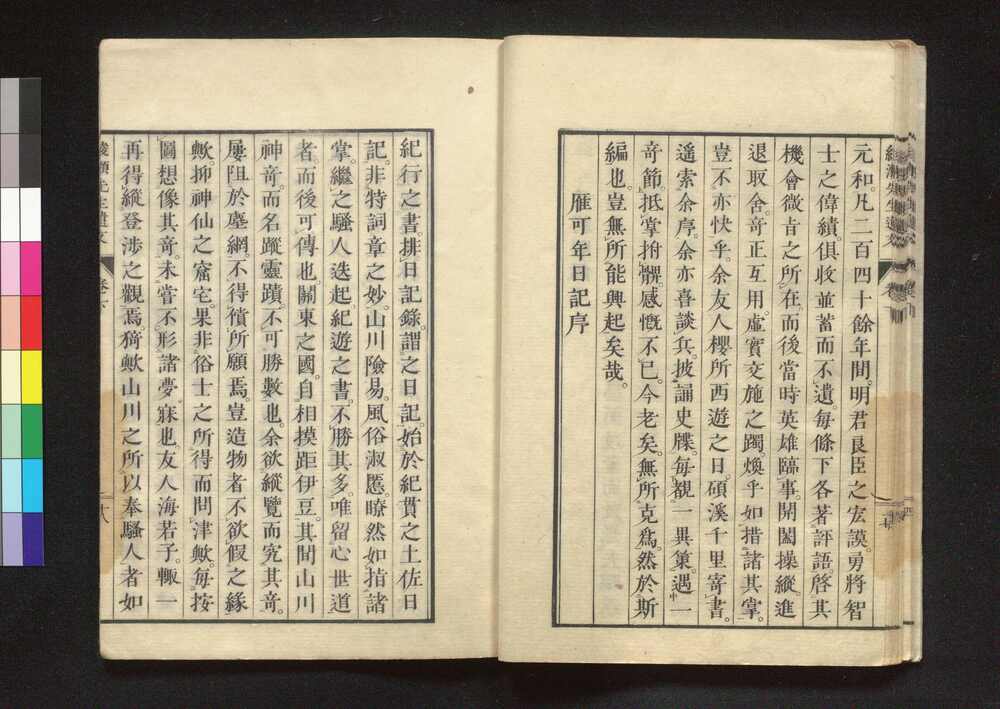 元和。凡二百四十餘年間。明君良臣之宏謨。勇將智
士之偉績。俱收並蓄而不遺。每條下各著評語。啓其
機會微旨之所在。而後當時英雄臨事。開闔操縱。進
退取舍。奇正互用。虛實交施之躅。煥乎如措諸其掌。
豈不亦快乎。余友人櫻所西遊之日。碩溪千里寄書。
遥索余序。余亦喜談兵。披誦史牒。每覩一異策。遇一
奇節。抵掌拊髀。感慨不已。今老矣。無所克爲。然於斯
編也。豈無所能興起矣哉。
雁可年日記序
紀行之書。排日記錄。謂之日記。始於紀貫之土佐日
記。非特詞章之妙。山川險易。風俗淑慝。瞭然如指諸
掌。繼之騷人迭起。紀遊之書。不勝其多。唯留心世道
者。而後可傳也。關東之國。自相摸距伊豆。其間山川
神奇。而名蹤靈蹟。不可勝數也。余欲縱覽而究其奇。
屢阻於塵網。不得償所願焉。豈造物者不欲假之緣
歟。抑神仙之窟宅。果非俗士之所得而問津歟。每按
圖想像其奇。未嘗不形諸夢寐也。友人海若子。輙一
再得縱登涉之觀焉。猗歟山川之所以奉騷人者如
先生遺文
卷下
十八